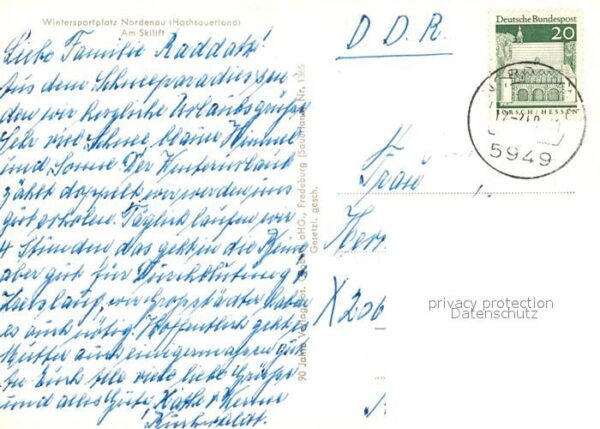 Wintersportplatz Nordenau (Hochsauerland)
Am Skilift
Liebe Familie Raddatz!
Aus dem Schneeparadies sen
den wir herzliche Urlaubsgrüße
Sehr viel Schnee blauer Himmel
und Sonne. Der Winterurlaub
zählt doppelt wir werden uns
gut erholen. Täglich laufen wir
4 Stunden das geht in die Beine
aber gut für Durchblutung
Kreislauf, wir Großstädter haben
es auch nötig. Hoffentlich geht es
Mutter auch einigermassen gut
Euch alle viele liebe Grüße
und alles Gute Werner
90 Jahre Verlag oHG., Fredeburg (Sauerland) Nr.
Gesetzl. gesch.
D D R.
Deutsche Bundespost
20
LORSCH/HESSEN
5949
Herr
X 206
privacy protection
Datenschutz